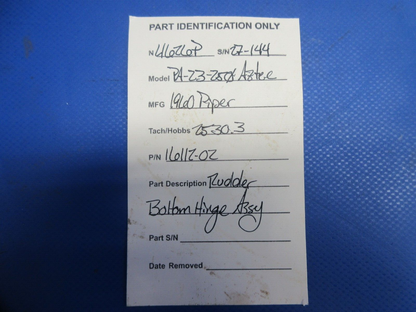 PART IDENTIFICATION ONLY
N 4626P S/N 27-144
Model PA-23-250 Aztec
MFG 1960 Piper
Tach/Hobbs 2530.3
P/N 16117-02
Part Description Rudder
Bottom Hinge Assy
Part S/N
Date Removed